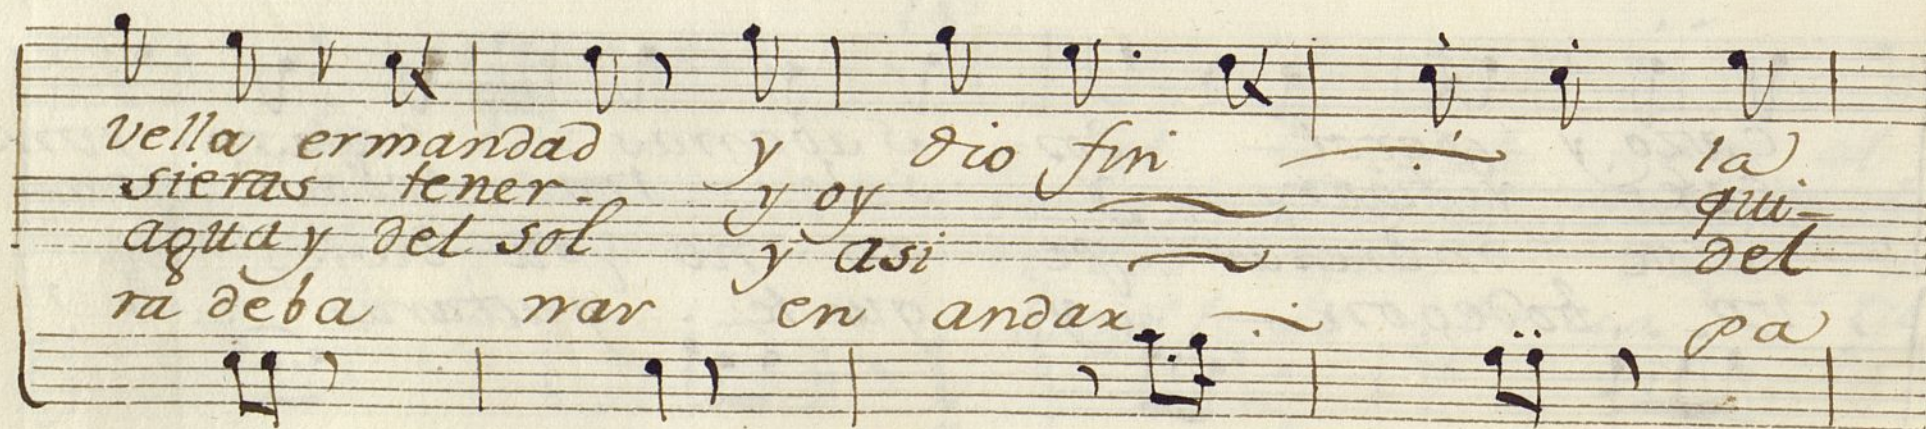 vella ermandad y dio fin la
sieras tener- y oy qui-
agua y del sol y asi del
ra deba nar en andar pa